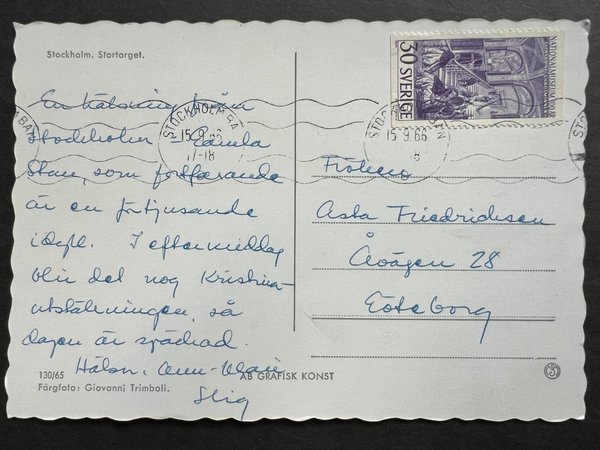 Stockholm. Stortorget.
En hälsning från
Stockholm – Gamla
Stan, som fortfarande
är en förtjusande
idyll. I eftermiddag
blir det nog Kristina-
utställningen, så
dagen är späckad.
Hälsn. Ann-Marie
Stig
130/65
Färgfoto: Giovanni Trimboli.
AB GRAFISK KONST
STOCKHOLM BAN
15.9.66
17-18
STOCKHOLM BAN
15.9.66
30 SVERIGE
NATIONALMUSEUM
Fröken
Asta Friedrichsen
Åvägen 28
Göteborg